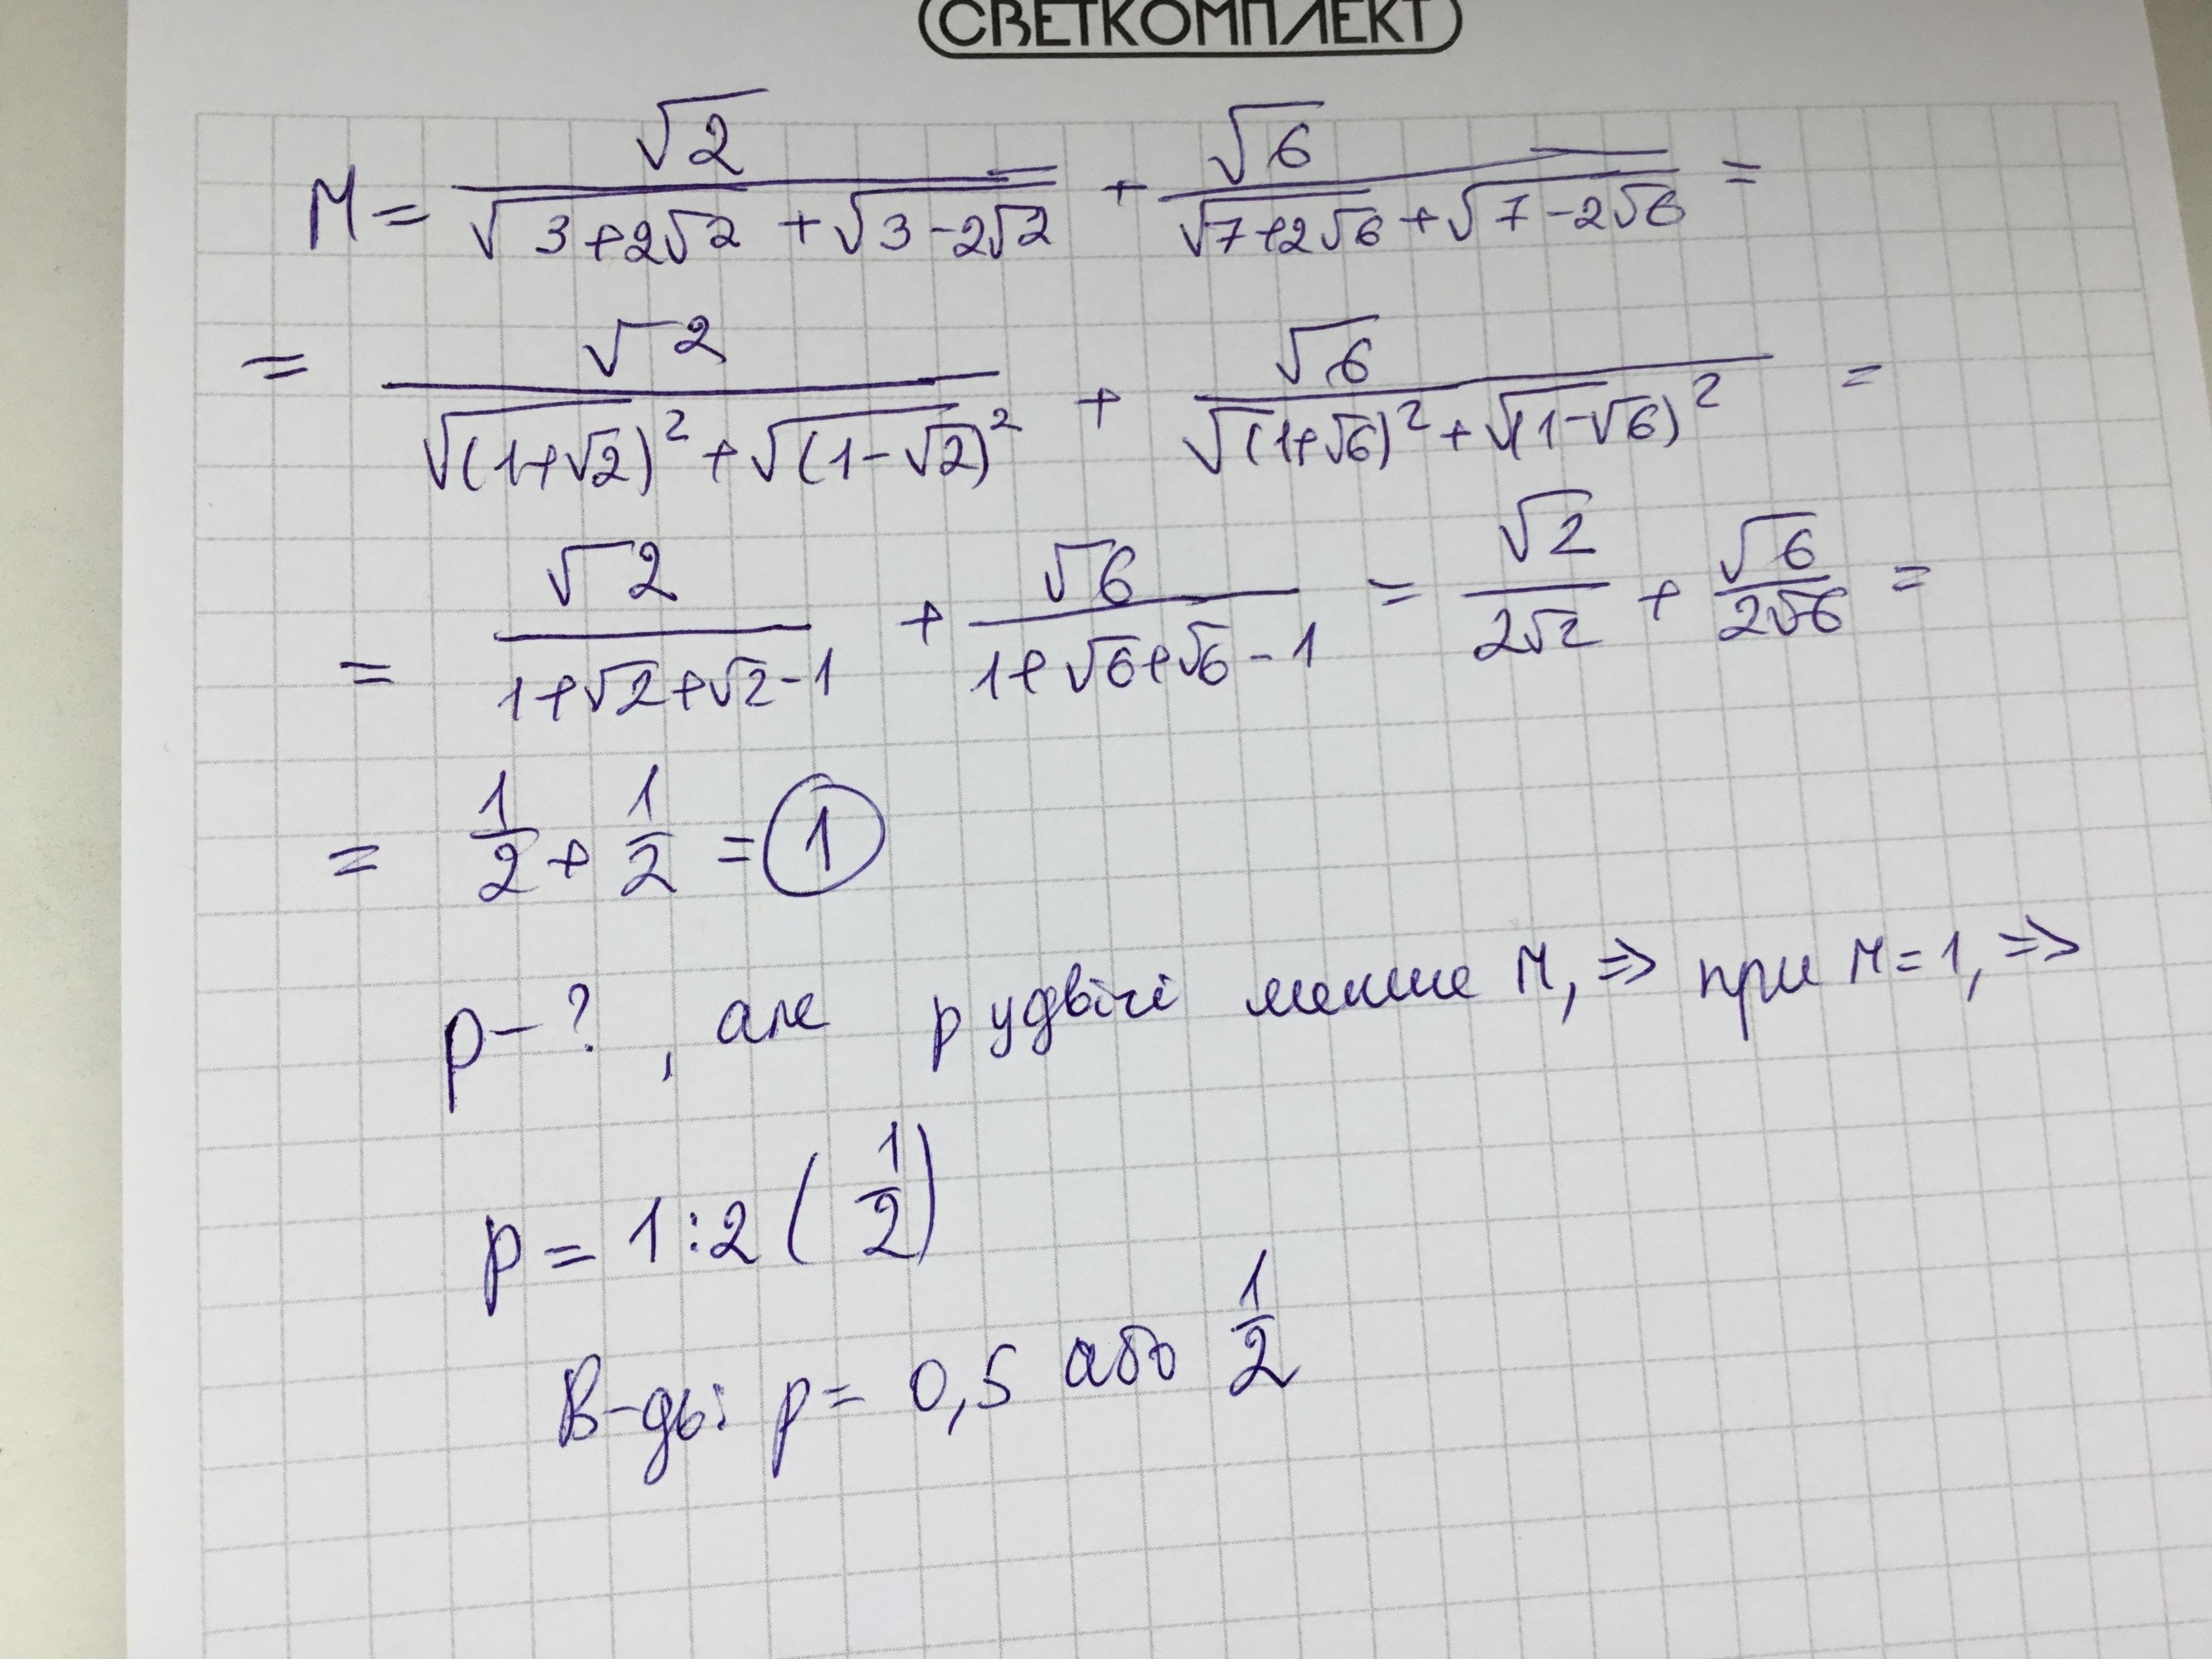 СВЕТКОМПЛЕКТ
M = √2 / (√(3+2√2) + √(3-2√2)) + √6 / (√(7+2√6) + √(7-2√6)) =
= √2 / (√(1+√2)² + √(1-√2)²) + √6 / (√(1+√6)² + √(1-√6)²) =
= √2 / (1+√2+√2-1) + √6 / (1+√6+√6-1) = √2 / 2√2 + √6 / 2√6 =
= 1/2 + 1/2 = 1
p-?, але p удвічі менше M, ⇒ при M=1, ⇒
p = 1:2 (1/2)
В-дь: p= 0,5 або 1/2